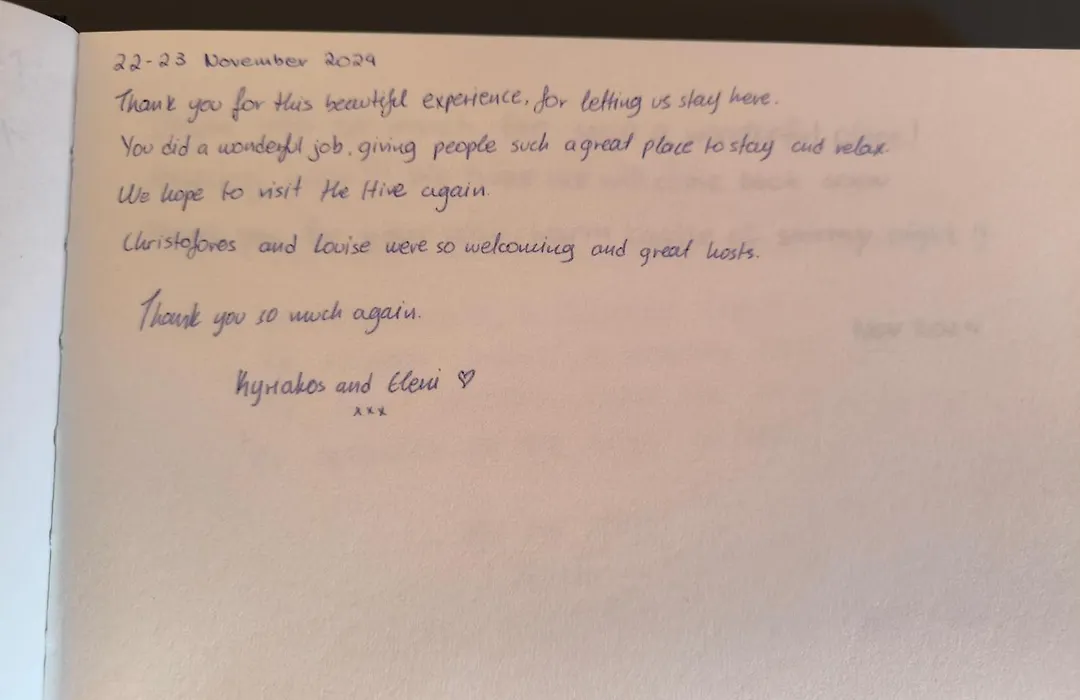 22-23 November 2024
Thank you for this beautiful experience, for letting us stay here.
You did a wonderful job, giving people such a great place to stay and relax.
We hope to visit the Hive again.
Christoforos and Louise were so welcoming and great hosts.
Thank you so much again.
Kyriakos and Eleni ♡
xxx